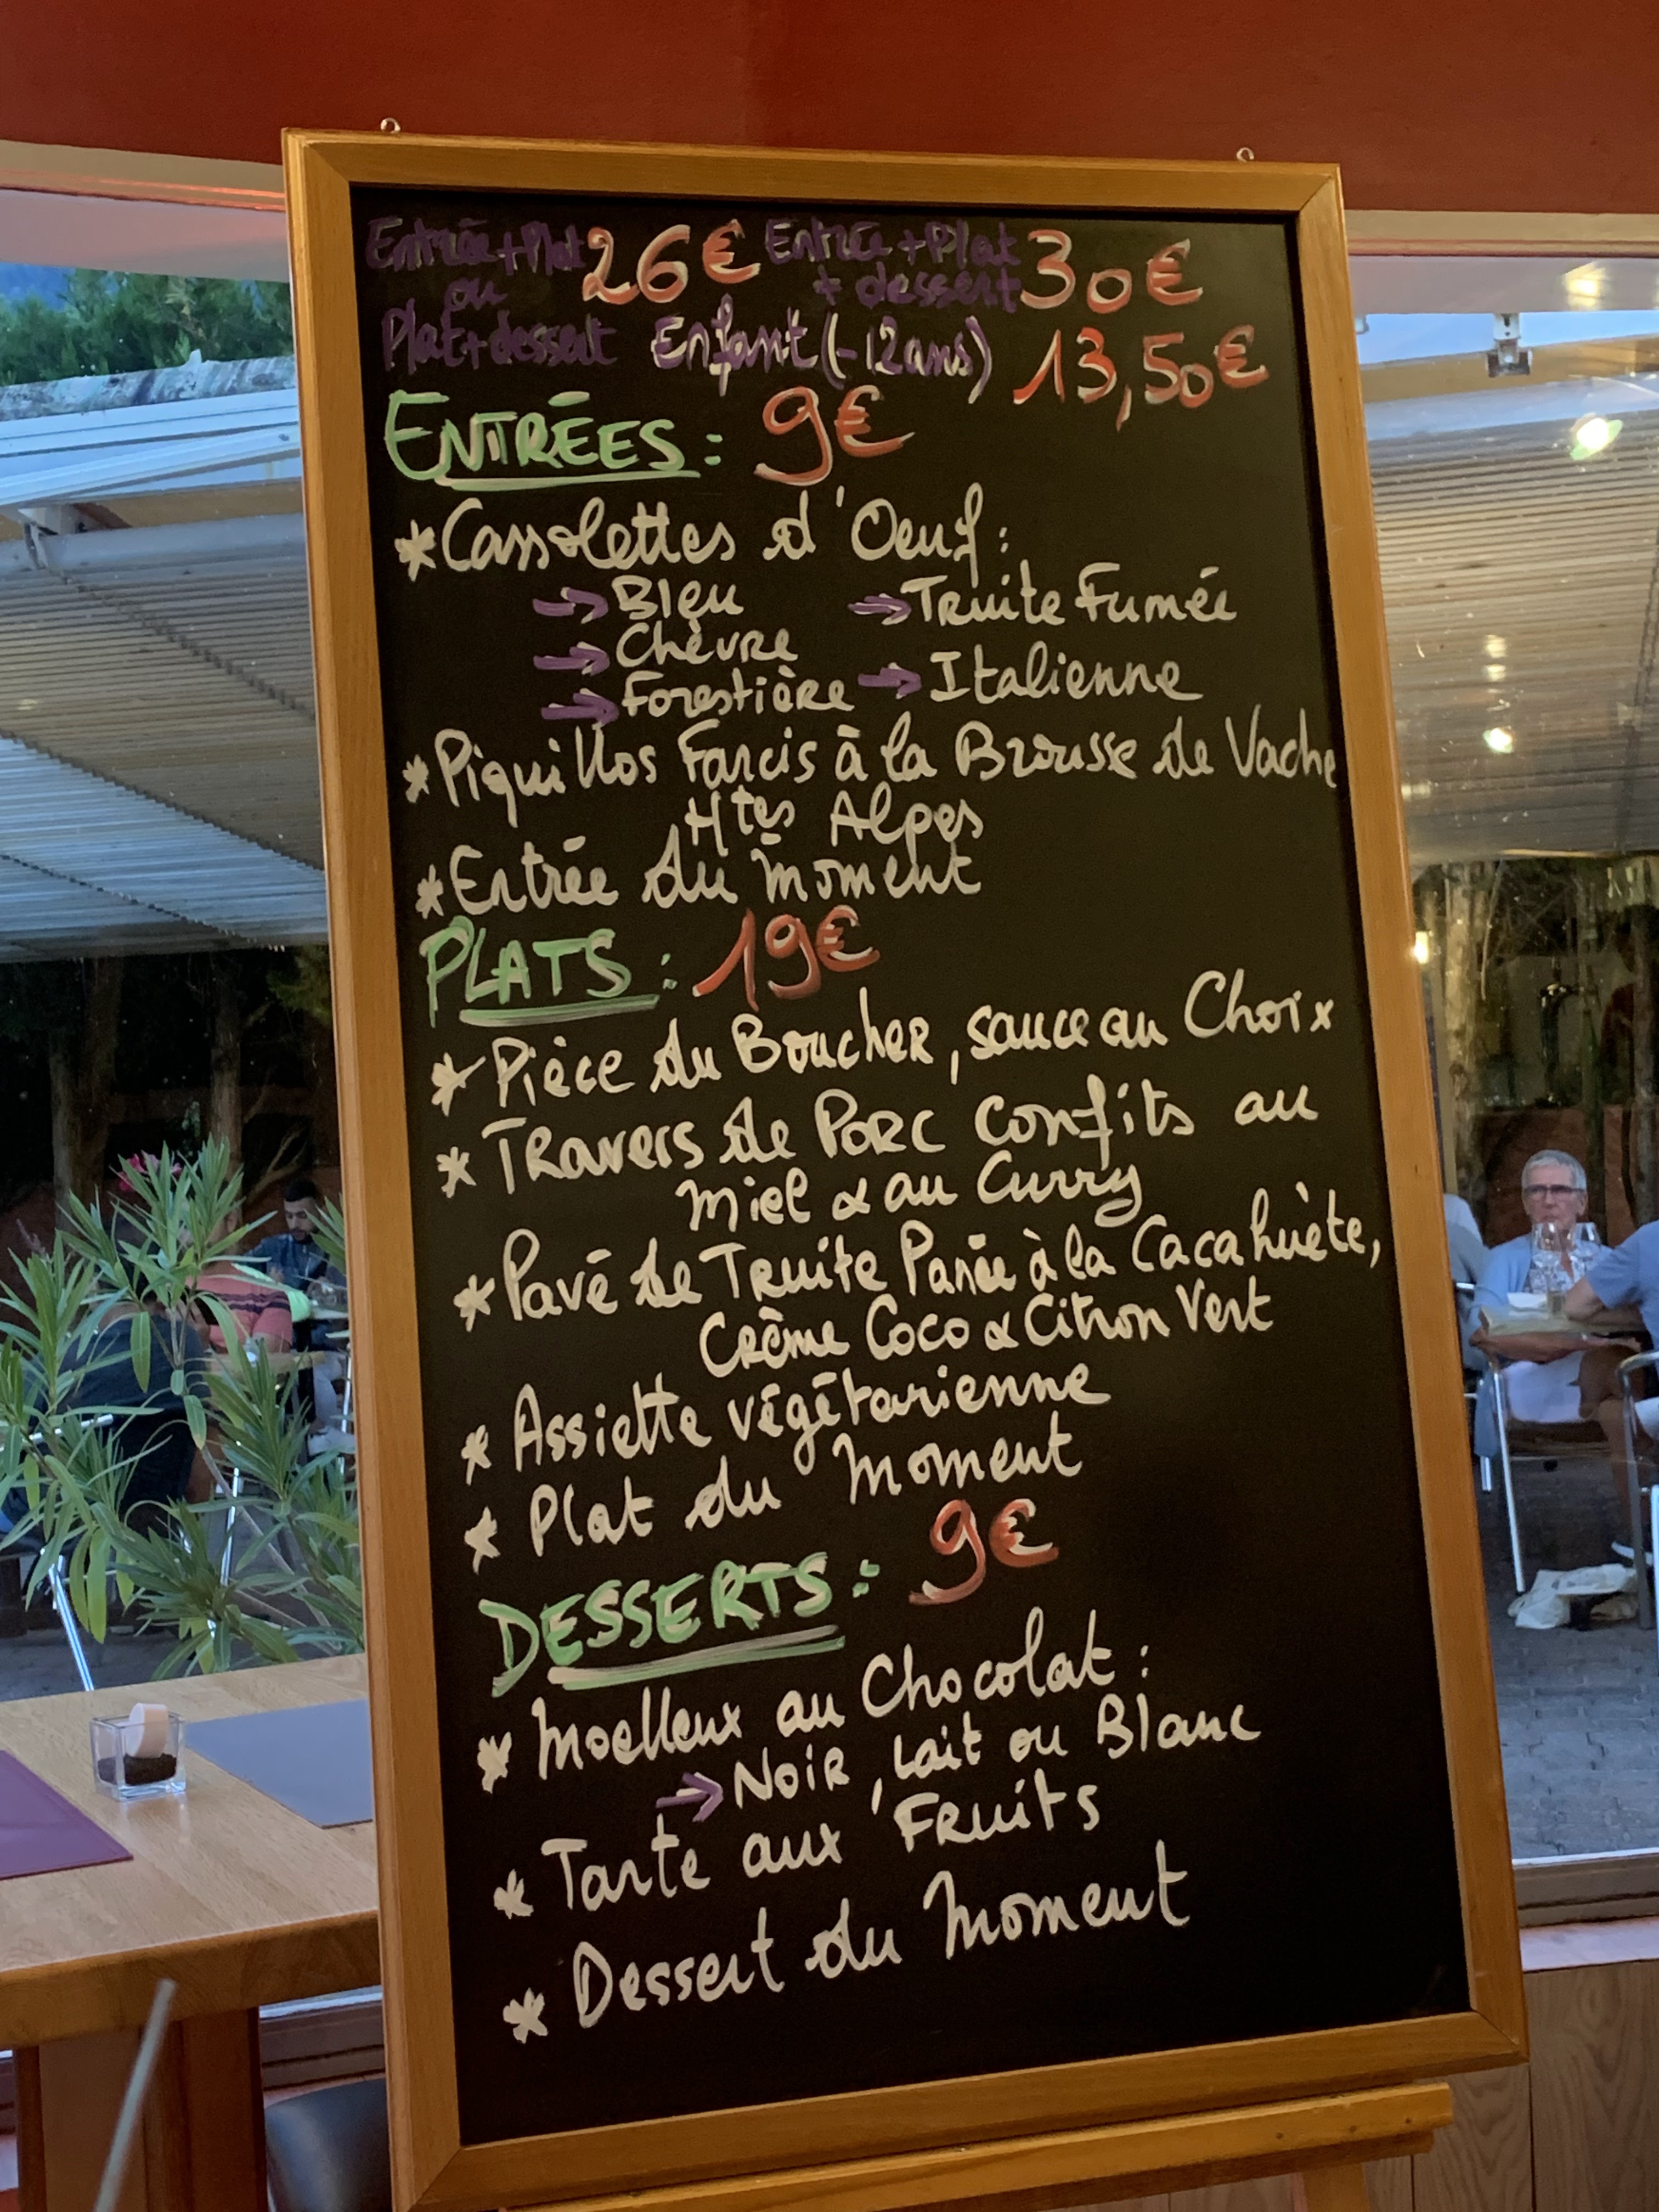 Entrée+Plat 26€ Entrée+Plat 30€
ou + dessert
Plat+dessert Enfant (-12ans) 13,50€
ENTRÉES : 9€
*Cassolettes d'Oeuf :
→Bleu →Truite Fumée
→Chèvre
→Forestière →Italienne
*Piquillos Farcis à la Brousse de Vache
Htes Alpes
*Entrée du moment
PLATS : 19€
* Pièce du Boucher, sauce au Choix
* Travers de Porc Confits au
Miel & au Curry
*Pavé de Truite Panée à la Cacahuète,
Crème Coco & Citron Vert
* Assiette végétarienne
* Plat du Moment
DESSERTS : 9€
* Moelleux au Chocolat :
→ Noir, Lait ou Blanc
* Tarte aux Fruits
* Dessert du Moment